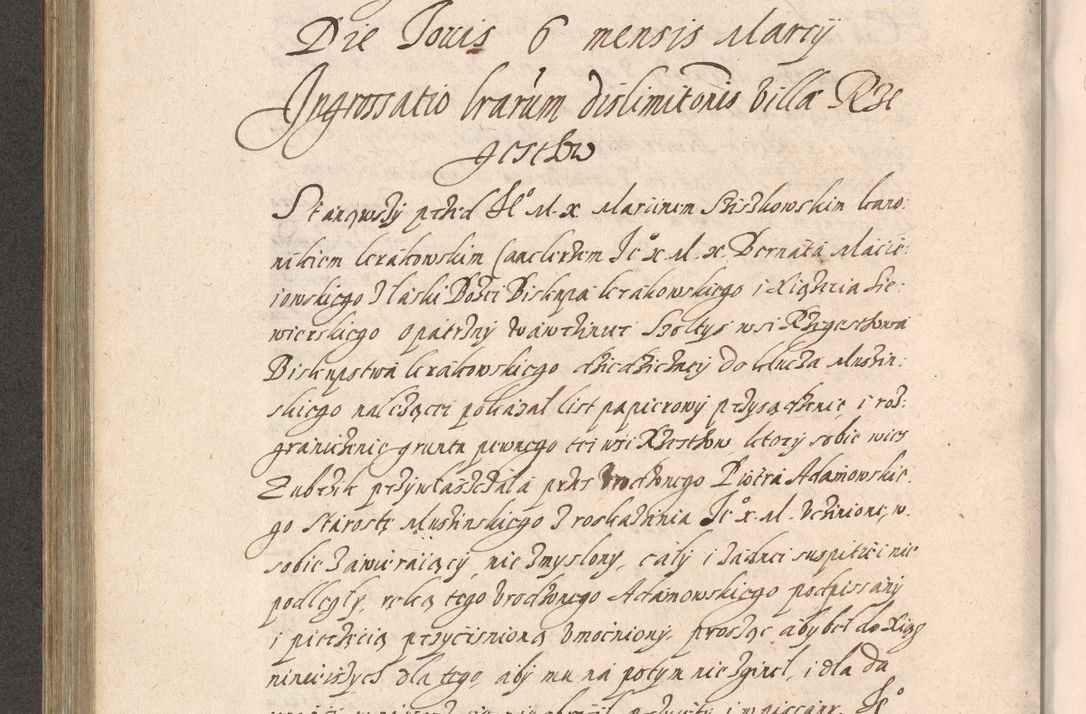 Die Jouis 6 mensis Marcij
Ingrossatio lrarum dislimitonis villæ Rze
gestow
Stanąwszy przed Je° M. x Marcinem Szyszkowskim kano:
nikiem krakowskim Canclerzem Je° x. M. x. Bernata Macie:
iowskiego z łaski Bożei Biskupa krakowskiego i Xiążęcia Sie:
wierskiego opatrzny Wawrziniec Szołtys wsi Rzegestowa
Biskupstwa krakowskiego dziedziczney do klucza Muszin:
skiego należącei pokazał list papierowy przysądzenie i roz:
graniczenie gruntu pewnego tei wsi Rzestow ktory sobie wies
Zubrzik przywłaszczała przez Vrodzonego Piotra Adamowskie
go Starostę Muszinskiego z roskazania Je° x. M. vczinione, w
sobie zawieraiący, nie zmyslony, cały i żadnei suspitiei nie
podległy, ręką tego vrodzonego Adamowskiego podpissany
i pieczęcią przycisnioną vmocniony, prosząc aby beł do Xiąg
nineiszych dla tego, aby mu na potym nie zginęł, i dla da